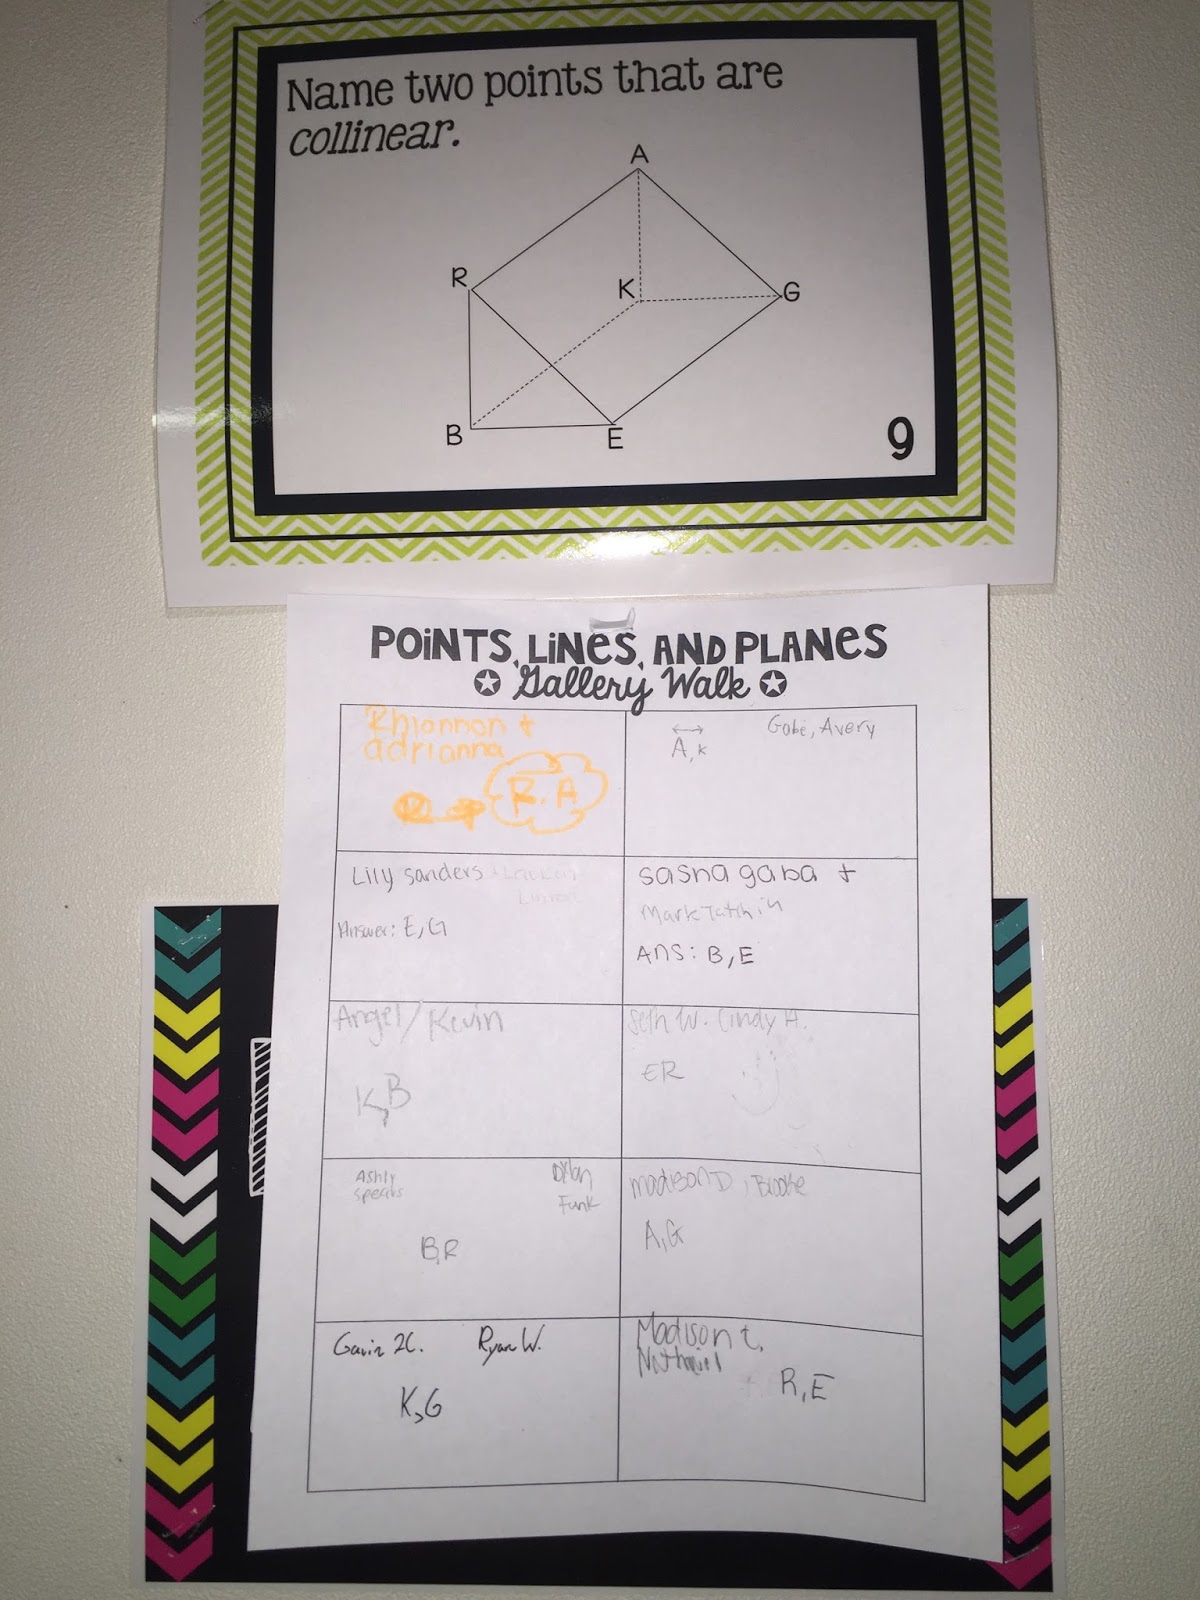 Name two points that are
collinear.
A
R
K
G
B
E
9
POINTS, LINES, AND PLANES
Gallery Walk
Rhiannon +
adrianna
R.A
A,K
Gabe, Avery
Lily sanders +
Answer: E,G
sasha gaba +
Mark
Ans: B,E
Angel/Kevin
K,B
Seth W. Cindy A.
ER
Ashly
spears
Dylan
Funk
B,R
madison D, Brooke
A,G
Gavin
Ryan W.
K,G
Madison t,
Nathaniel
R,E